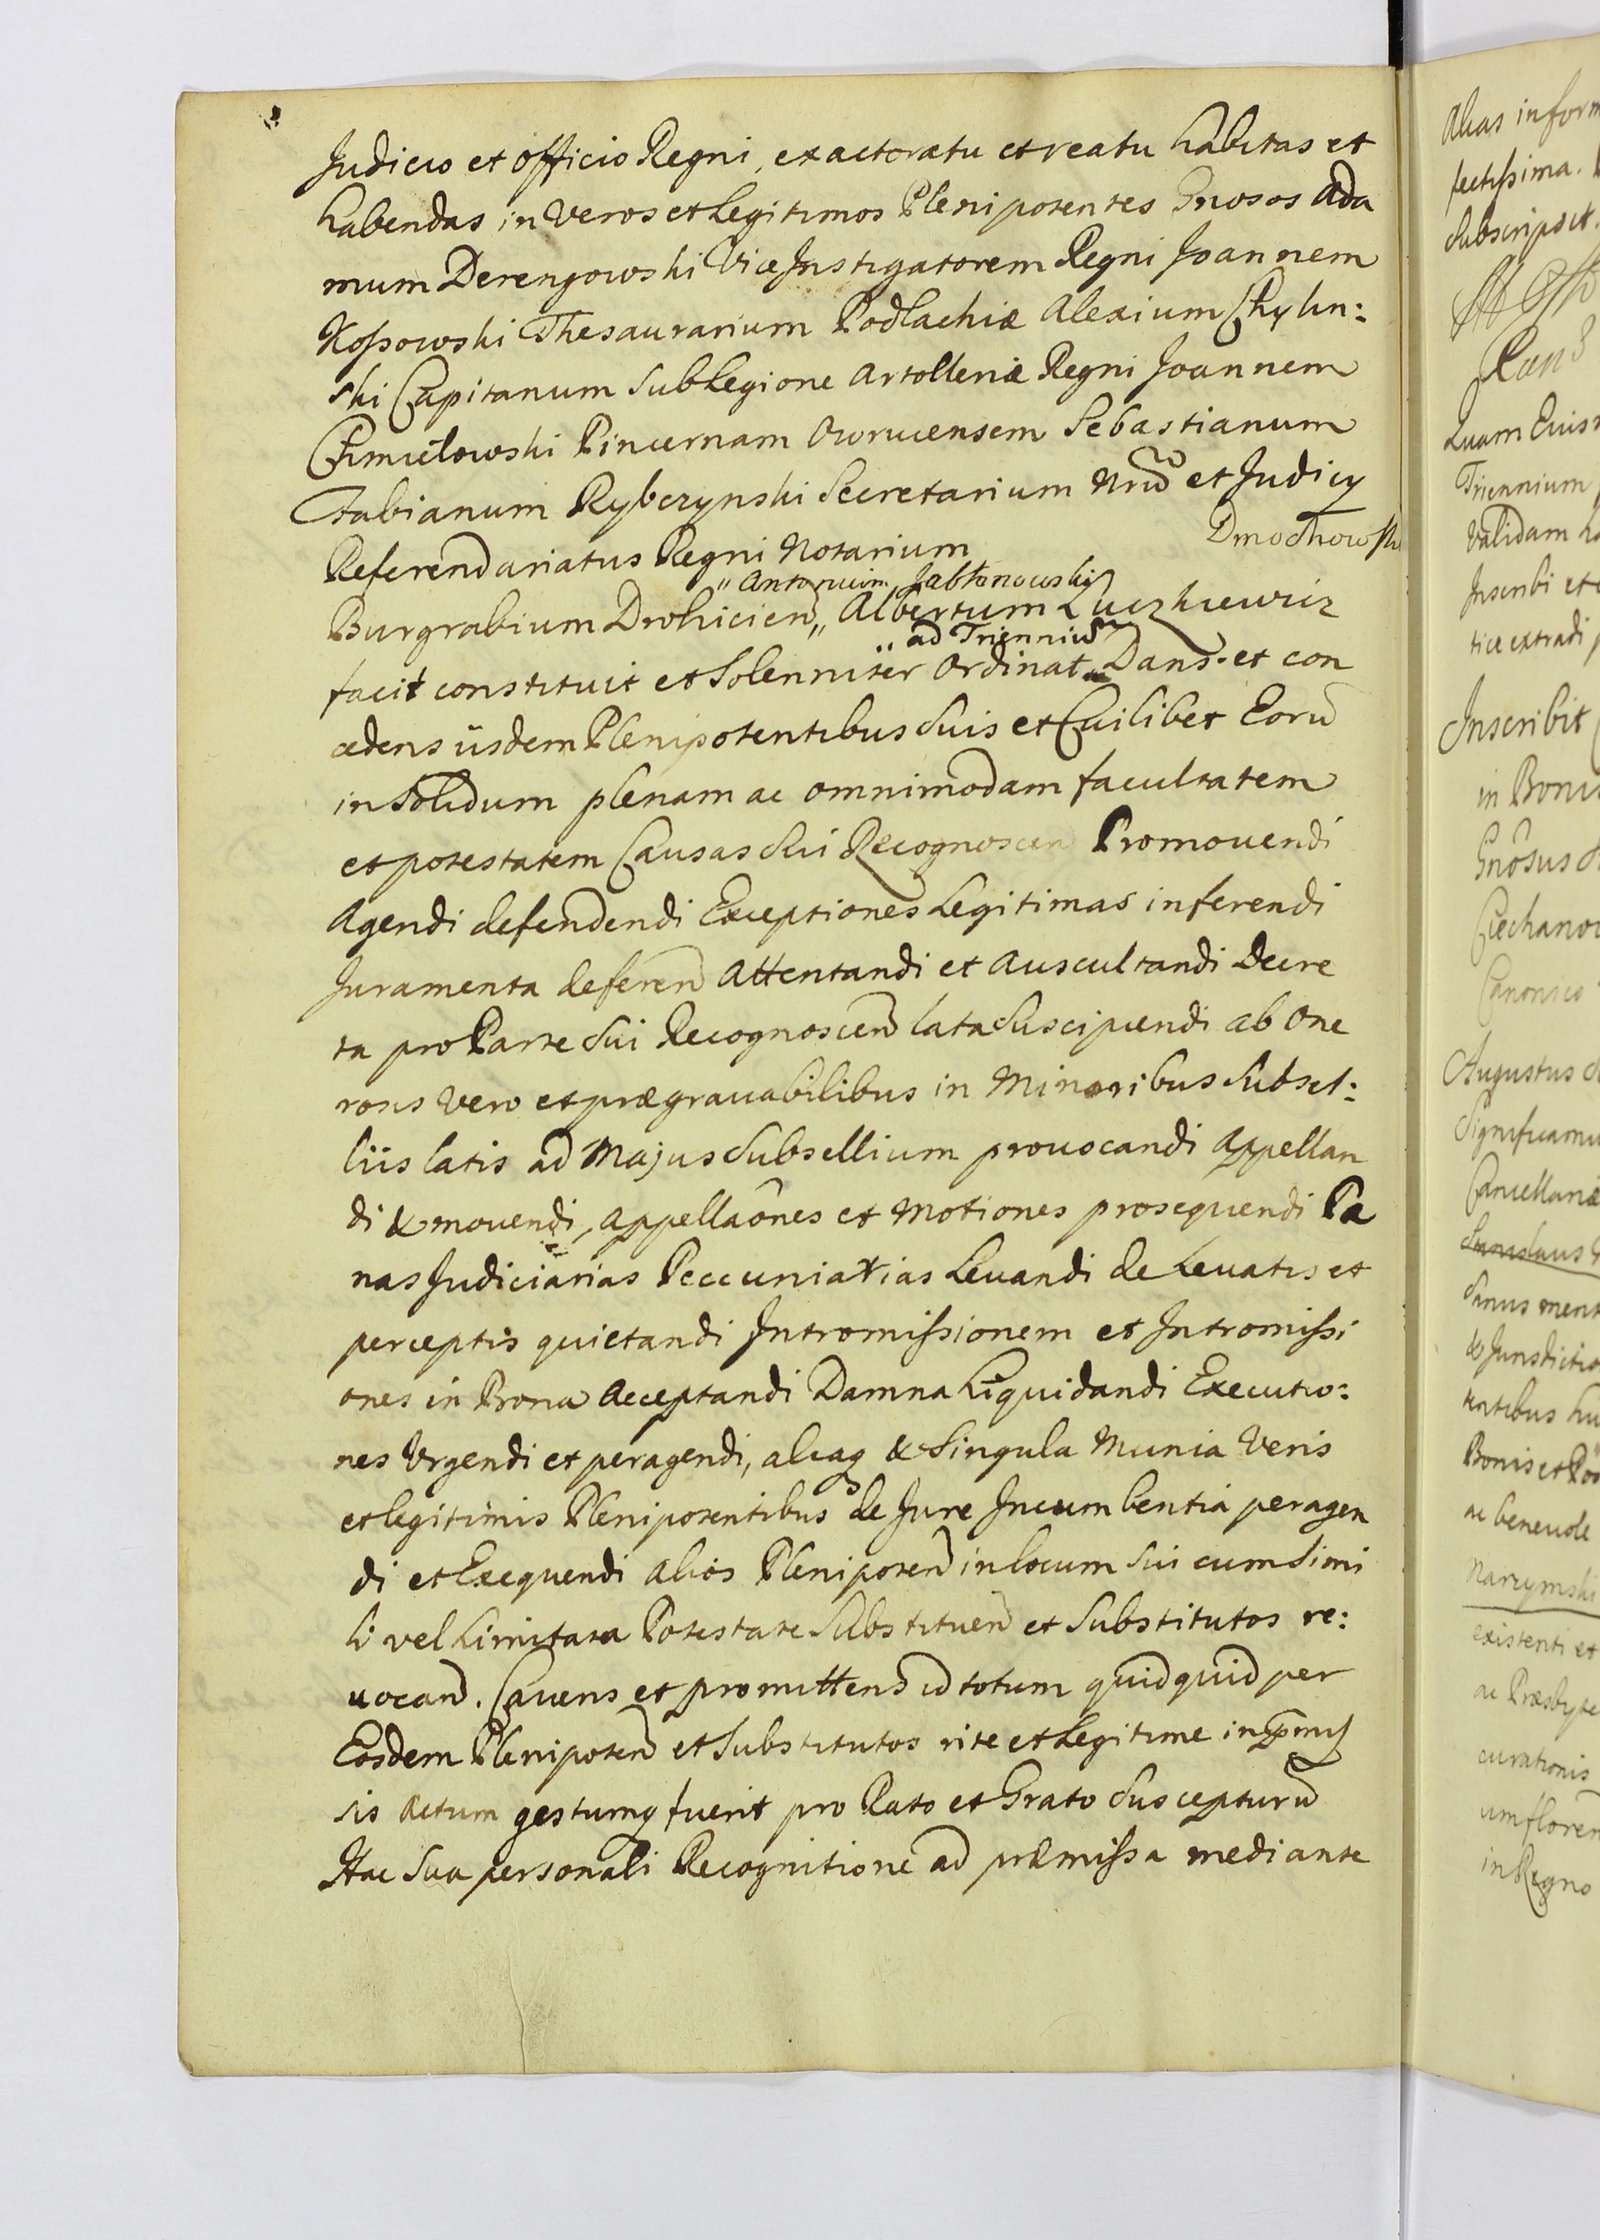 Judicio et officio Regni, ex actoratu et reatu habitas et
habendas in Veros et Legitimos Plenipotentes Gnosos Ada
mum Derengowski ViceInstigatorem Regni Joannem
Kossowski Thesaurarium Podlachiæ Alexium Chylin:
ski Capitanum sub Legione Artolleriæ Regni Joannem
Chmielowski Pincernam Owrucensem Sebastianum
Fabianum Rybczynski Secretarium Nrũ et Judicy
Referendariatus Regni Notarium Dmochowski
„ Antonium Jabłonowski
Burgrabium Drohicien „ Albertum Łuczkiewicz
„ ad Trienniũ
facit constituit et Solenniter Ordinat „ Dans et con
cedens iisdem Plenipotentibus Suis et Cuilibet Eorũ
in Solidum plenam ac omnimodam facultatem
et potestatem Causas Sui Recognoscen Promovendi
Agendi defendendi Exceptiones Legitimas inferendi
Juramenta deferen Attentandi et Auscultandi Decre
ta pro Parte Sui Recognoscen lata Suscipiendi ab One
rosis vero et prægravabilibus in Minoribus Subsel:
liis latis ad Majus Subsellium provocandi Appellan
di & movendi, appellaõnes et Motiones prosequendi Pæ
nas Judiciarias Peccuniarias Levandi de Levatis et
perceptis quietandi Intromissionem et Intromissi
ones in Bona Acceptandi Damna Liquidandi Executio:
nes Urgendi et peragendi, aliaq & Singula Munia Veris
et legitimis Plenipotentibus de Jure Incumbentia peragen
di et Exequendi Alios Plenipoten in locum Sui cum Simi
li vel Limitata Potestate Substituen et Substitutos re:
vocan. Cavens et promittens id totum quidquid per
Eosdem Plenipoten et Substitutos rite et Legitime in pmis
sis Actum gestumq fuerit pro Rato et Grato Suscepturũ
Hac Sua personali Recognitione ad præmissa mediante
Alias inform
fectissima.
Subscripsit.
Quam Eius
Triennium
Validam
Inscribi et
tice extradi
Inscribit
in Bonis
Gnõsus
Ciechanow
Canonico
Augustus
Significamus
Cancellariæ
Sanus ment
& Jurisdictio
tentibus hu
Bonis et
ac benevole
Narzymski
existenti et
ac Præsbyte
curationis
um floren
in Regno